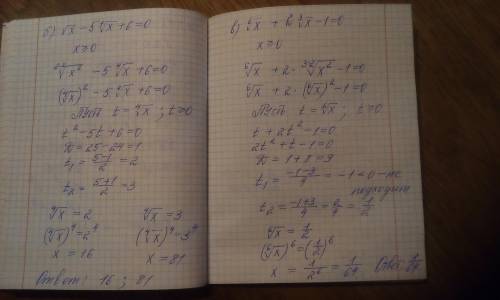 б) √x - 5⁴√x + 6 = 0
x ≥ 0
²·²√x² - 5⁴√x + 6 = 0
(⁴√x)² - 5⁴√x + 6 = 0
Пусть t = ⁴√x ; t ≥ 0
t² - 5t + 6 = 0
D = 25 - 24 = 1
t₁ = (5-1)/2 = 2
t₂ = (5+1)/2 = 3
⁴√x = 2 ⁴√x = 3
(⁴√x)⁴ = 2⁴ (⁴√x)⁴ = 3⁴
x = 16 x = 81
Ответ: 16 ; 81
в) ⁶√x + 2 ³√x - 1 = 0
x ≥ 0
⁶√x + 2 · ³·²√x² - 1 = 0
⁶√x + 2 · (⁶√x)² - 1 = 0
Пусть t = ⁶√x ; t ≥ 0
t + 2t² - 1 = 0
2t² + t - 1 = 0
D = 1 + 8 = 9
t₁ = (-1-3)/4 = -1 < 0 - не
подходит
t₂ = (-1+3)/4 = 2/4 = 1/2
⁶√x = 1/2
(⁶√x)⁶ = (1/2)⁶
x = 1/2⁶ = 1/64 Ответ: 1/64